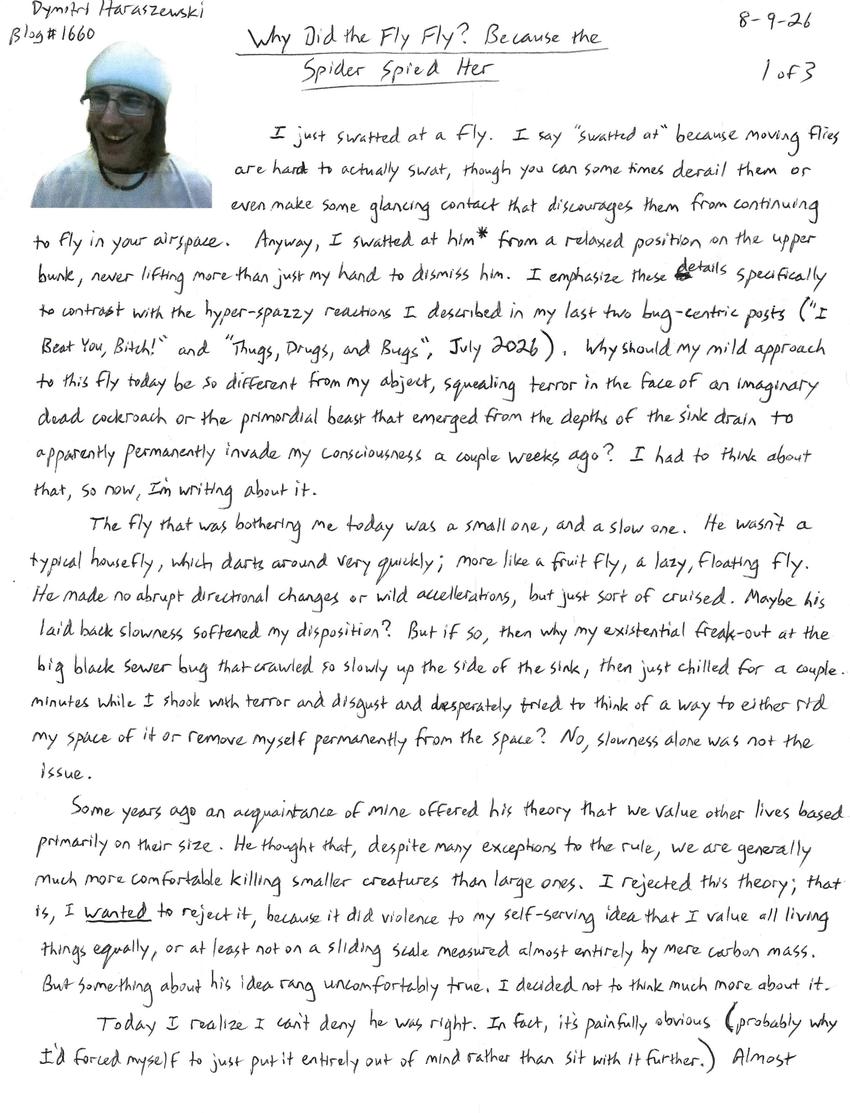 Dymitri Haraszewski
Blog #1660
8-9-26
Why Did the Fly Fly? Because the
Spider Spied Her
1 of 3
I just swatted at a fly. I say "swatted at" because moving flies
are hard to actually swat, though you can some times derail them or
even make some glancing contact that discourages them from continuing
to fly in your airspace. Anyway, I swatted at him* from a relaxed position on the upper
bunk, never lifting more than just my hand to dismiss him. I emphasize these details specifically
to contrast with the hyper-spazzy reactions I described in my last two bug-centric posts ("I
Beat You, Bitch!" and "Thugs, Drugs, and Bugs", July 2026). Why should my mild approach
to this fly today be so different from my abject, squealing terror in the face of an imaginary
dead cockroach or the primordial beast that emerged from the depths of the sink drain to
apparently permanently invade my consciousness a couple weeks ago? I had to think about
that, so now, I'm writing about it.
The fly that was bothering me today was a small one, and a slow one. He wasn't a
typical housefly, which darts around very quickly; more like a fruit fly, a lazy, floating fly.
He made no abrupt directional changes or wild accellerations, but just sort of cruised. Maybe his
laid back slowness softened my disposition? But if so, then why my existential freak-out at the
big black sewer bug that crawled so slowly up the side of the sink, then just chilled for a couple.
minutes while I shook with terror and disgust and desperately tried to think of a way to either rid
my space of it or remove myself permanently from the space? No, slowness alone was not the
issue.
Some years ago an acquaintance of mine offered his theory that we value other lives based
primarily on their size. He thought that, despite many exceptions to the rule, we are generally
much more comfortable killing smaller creatures than large ones. I rejected this theory; that
is, I wanted to reject it, because it did violence to my self-serving idea that I value all living
things equally, or at least not on a sliding scale measured almost entirely by mere carbon mass.
But something about his idea rang uncomfortably true. I decided not to think much more about it.
Today I realize I can't deny he was right. In fact, it's painfully obvious (probably why
I'd forced myself to just put it entirely out of mind rather than sit with it further.) Almost